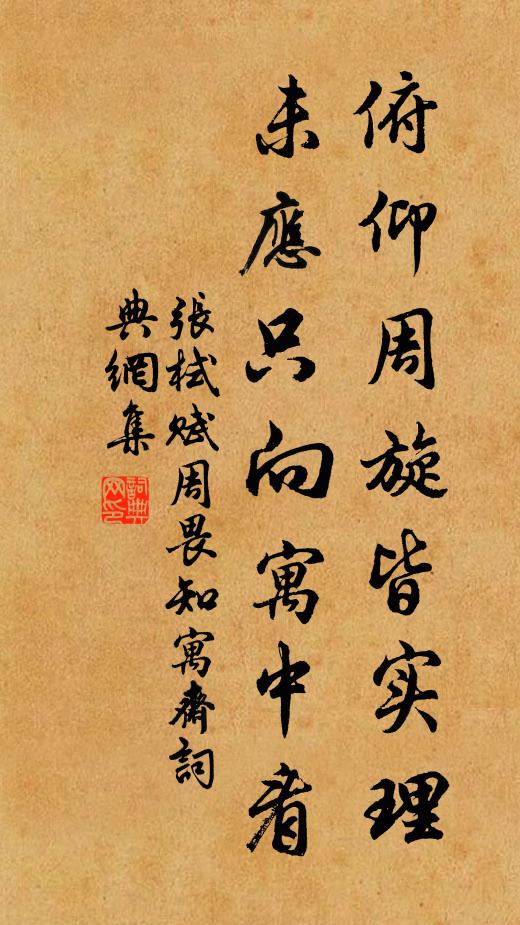 俯仰周旋皆实理
未應只向寓中看
張栻赋周畏知寓齋詞
典網集
詞典
网印